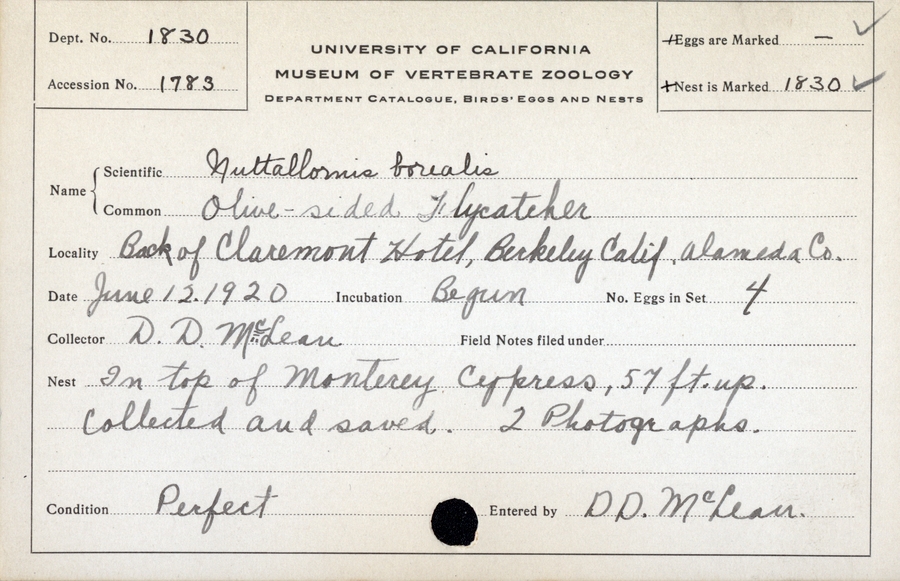 Dept. No. 1830
Accession No. 1783
UNIVERSITY OF CALIFORNIA
MUSEUM OF VERTEBRATE ZOOLOGY
DEPARTMENT CATALOGUE, BIRDS' EGGS AND NESTS
Eggs are Marked —
Nest is Marked 1830
Name
Scientific Nuttallornis borealis
Common Olive-sided Flycatcher
Locality Back of Claremont Hotel, Berkeley Calif. Alameda Co.
Date June 12. 1920 Incubation Begun No. Eggs in Set 4
Collector D. D. McLean Field Notes filed under
Nest In top of Monterey Cypress, 57 ft. up.
Collected and saved. 2 Photographs.
Condition Perfect Entered by D D. McLean.